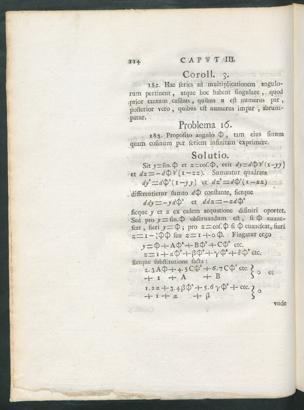 224 CAPVT III.
Coroll. 3.
182. Hae series ad multiplicationem angulo-
rum pertinent, atque hoc habent singulare, quod
prior tantum casibus, quibus n est numerus par,
posterior vero, quibus est numerus impar, abrum-
patur.
Problema 16.
183. Proposito angulo Φ, tam eius sinum
quam cosinum per seriem infinitam exprimere.
Solutio.
Sit y=sin.Φ et z=cos.Φ, erit dy=dΦ√(1-yy)
et dz=-dΦ√(1-zz). Sumantur quadrata
dy²=dΦ²(1-yy) et dz²=dΦ²(1-zz)
differentietur sumto dΦ constante, fietque
ddy=-ydΦ² et ddz=-zdΦ²
sicque y et z ex eadem aequatione definiri oportet.
Sed pro y=sin.Φ obseruandum est, si Φ euane-
scat, fieri y=Φ; pro z=cos.Φ si Φ euanescat, fieri
z=1-½ΦΦ seu z=1+0Φ. Fingatur ergo
y=Φ+AΦ³+BΦ⁵+CΦ⁷ etc.
z=1+αΦ²+βΦ⁴+γΦ⁶+δΦ⁸ etc.
fietque substitutione facta:
2.3AΦ+4.5CΦ³+6.7CΦ⁵ etc.
+1 +A +B
} 0 et
1.2α+3.4βΦ²+5.6γΦ⁴+ etc.
+1 +α +β
} 0
vnde